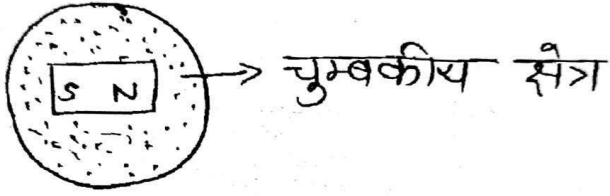 S N → चुम्बकीय क्षेत्र